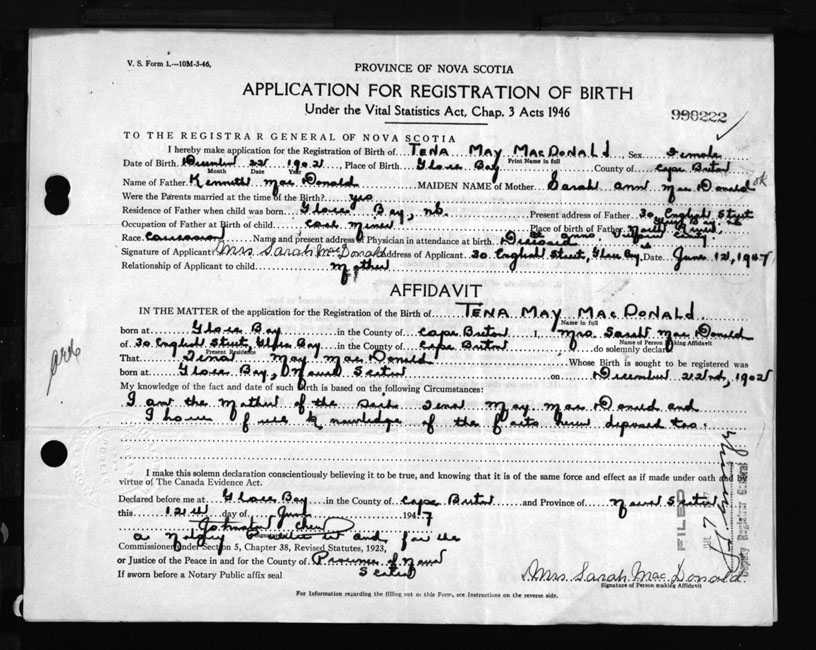 V. S. Form 1.—10M-3-46,
PROVINCE OF NOVA SCOTIA
APPLICATION FOR REGISTRATION OF BIRTH
Under the Vital Statistics Act, Chap. 3 Acts 1946
998222
TO THE REGISTRAR GENERAL OF NOVA SCOTIA
I hereby make application for the Registration of Birth of TENA MAY MACDONALD, Sex Female
Print Name in full
Date of Birth December 22 1902 Place of Birth Glace Bay County of Cape Breton
Month Date Year
Name of Father Kenneth Mac Donald MAIDEN NAME of Mother Sarah Ann Mac Donald
Were the Parents married at the time of the Birth? yes
Residence of Father when child was born Glace Bay, N.S. Present address of Father 30 English Street Glace Bay
Occupation of Father at Birth of child Coal Miner Place of birth of Father North River,
Race Name and present address of Physician in attendance at birth Deceased St Anns, Victoria County
Signature of Applicant Mrs Sarah MacDonald Address of Applicant 30 English Street, Glace Bay, Date June 12, 1947
Relationship of Applicant to child Mother
AFFIDAVIT
IN THE MATTER of the application for the Registration of the Birth of TENA MAY MACDONALD
Name in full
born at Glace Bay in the County of Cape Breton I, Mrs. Sarah Mac Donald
Name of Person Making Affidavit
of 30 English Street, Glace Bay in the County of Cape Breton do solemnly declare
Present Residence
That Tena May Mac Donald Whose Birth is sought to be registered was
born at Glace Bay, Nova Scotia on December 22nd, 1902
My knowledge of the fact and date of such Birth is based on the following Circumstances:
I am the Mother of the said Tena May Mac Donald and
I have full knowledge of the facts herein deposed too.
I make this solemn declaration conscientiously believing it to be true, and knowing that it is of the same force and effect as if made under oath and by
virtue of The Canada Evidence Act.
Declared before me at Glace Bay in the County of Cape Breton and Province of Nova Scotia
this 12th day of June 1947
A Notary Public in and for the
Commissioner under Section 5, Chapter 38, Revised Statutes, 1923,
or Justice of the Peace in and for the County of Province of Nova Scotia
If sworn before a Notary Public affix seal
Mrs Sarah Mac Donald.
Signature of Person making Affidavit
For Information regarding the filling out of this Form, see Instructions on the reverse side.
FILED
Deputy Registrar General